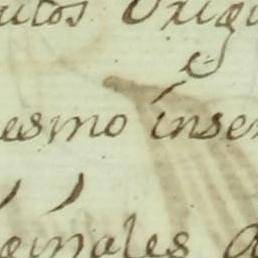 utos Orig
esmo inser
ginales